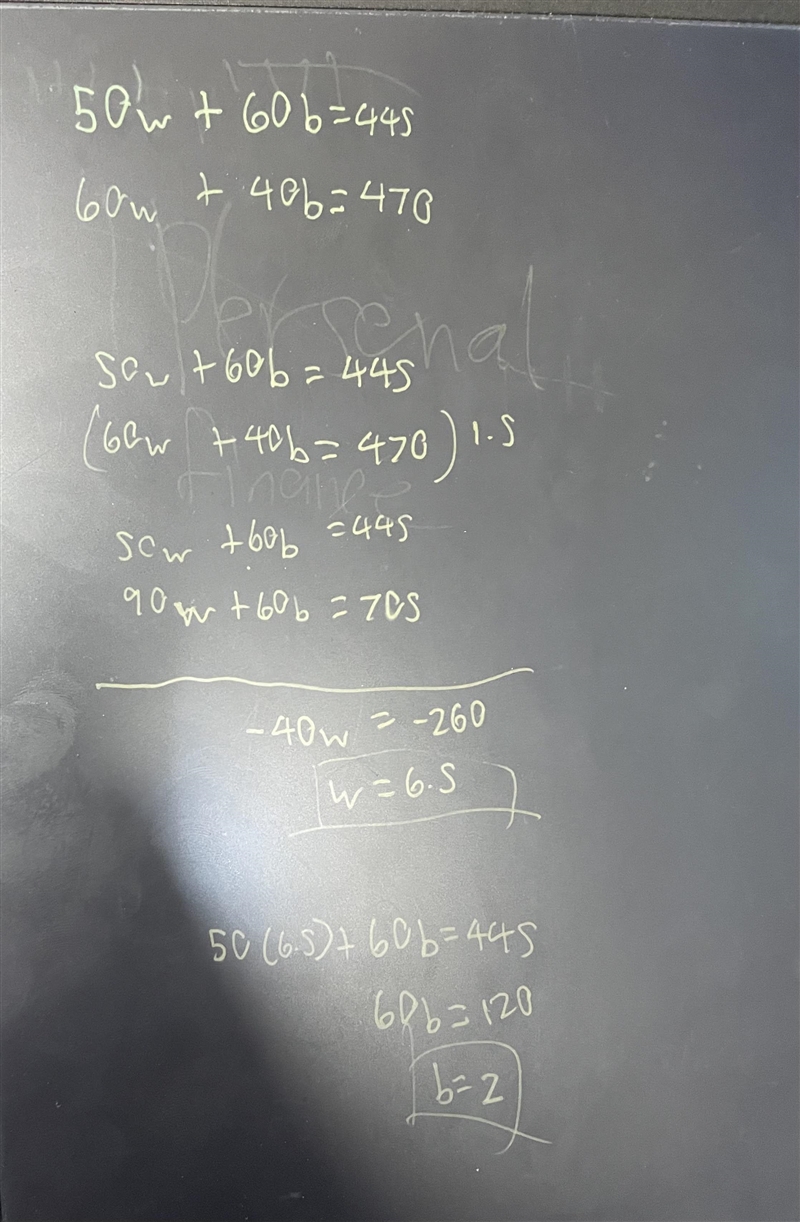 50w + 60b=445
60w + 40b=470
Personal
50w +60b = 445
(60w +40b= 470) 1.5
Finance
50w +60b =445
90w +60b = 705
-40w = -260
w=6.5
50(6.5)+60b=445
60b=120
b=2